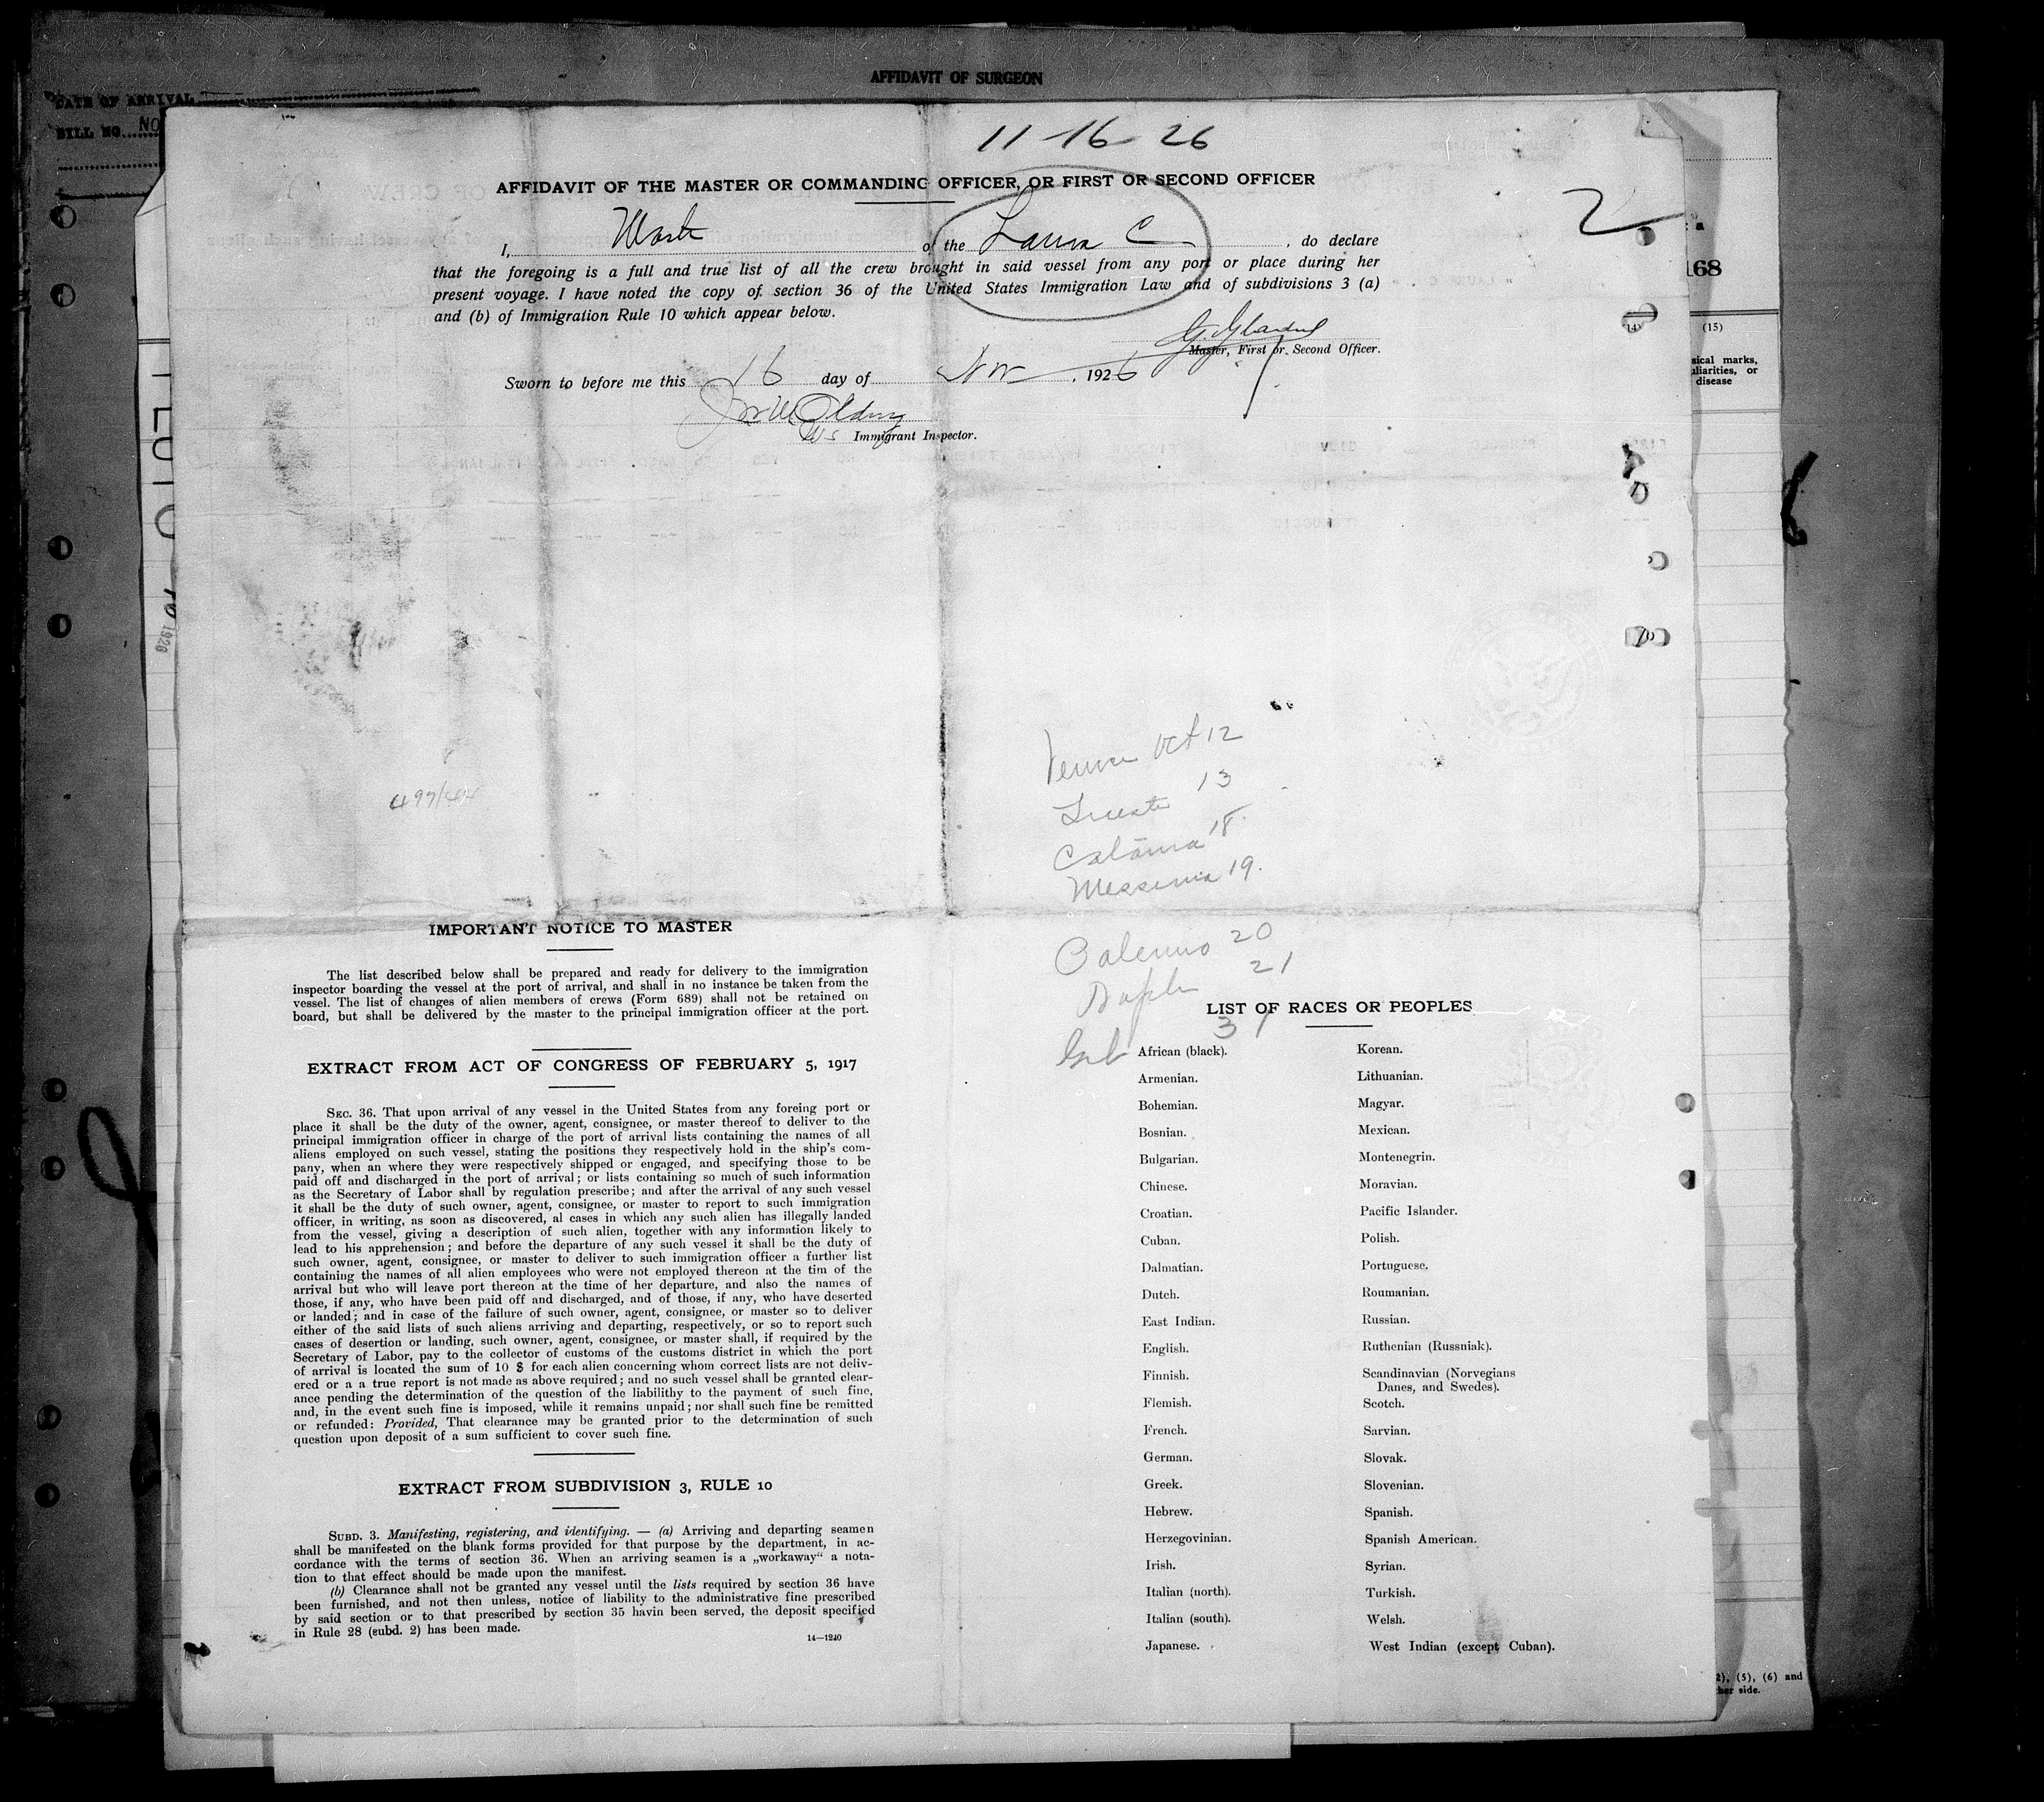 AFFIDAVIT OF SURGEON
DATE OF ARRIVAL
BILL NO. NO
11-16-26
AFFIDAVIT OF THE MASTER OR COMMANDING OFFICER, OR FIRST OR SECOND OFFICER
2
I, of the Laura C, do declare
that the foregoing is a full and true list of all the crew brought in said vessel from any port or place during her
present voyage. I have noted the copy of section 36 of the United States Immigration Law and of subdivisions 3 (a)
and (b) of Immigration Rule 10 which appear below.
Master, First or Second Officer.
Sworn to before me this 16 day of Nov, 1926
Immigrant Inspector.
168
(14)
(15)
sical marks,
uliarities, or
disease
1926
Oct 12
Trieste 13
Catania 18
Messina 19.
Palermo 20
Naples 21
Gib 31
IMPORTANT NOTICE TO MASTER
The list described below shall be prepared and ready for delivery to the immigration
inspector boarding the vessel at the port of arrival, and shall in no instance be taken from the
vessel. The list of changes of alien members of crews (Form 689) shall not be retained on
board, but shall be delivered by the master to the principal immigration officer at the port.
EXTRACT FROM ACT OF CONGRESS OF FEBRUARY 5, 1917
SEC. 36. That upon arrival of any vessel in the United States from any foreing port or
place it shall be the duty of the owner, agent, consignee, or master thereof to deliver to the
principal immigration officer in charge of the port of arrival lists containing the names of all
aliens employed on such vessel, stating the positions they respectively hold in the ship's com-
pany, when an where they were respectively shipped or engaged, and specifying those to be
paid off and discharged in the port of arrival; or lists containing so much of such information
as the Secretary of Labor shall by regulation prescribe; and after the arrival of any such vessel
it shall be the duty of such owner, agent, consignee, or master to report to such immigration
officer, in writing, as soon as discovered, al cases in which any such alien has illegally landed
from the vessel, giving a description of such alien, together with any information likely to
lead to his apprehension; and before the departure of any such vessel it shall be the duty of
such owner, agent, consignee, or master to deliver to such immigration officer a further list
containing the names of all alien employees who were not employed thereon at the tim of the
arrival but who will leave port thereon at the time of her departure, and also the names of
those, if any, who have been paid off and discharged, and of those, if any, who have deserted
or landed; and in case of the failure of such owner, agent, consignee, or master so to deliver
either of the said lists of such aliens arriving and departing, respectively, or so to report such
cases of desertion or landing, such owner, agent, consignee, or master shall, if required by the
Secretary of Labor, pay to the collector of customs of the customs district in which the port
of arrival is located the sum of 10 $ for each alien concerning whom correct lists are not deliv-
ered or a a true report is not made as above required; and no such vessel shall be granted clear-
ance pending the determination of the question of the liabilithy to the payment of such fine,
and, in the event such fine is imposed, while it remains unpaid; nor shall such fine be remitted
or refunded: Provided, That clearance may be granted prior to the determination of such
question upon deposit of a sum sufficient to cover such fine.
EXTRACT FROM SUBDIVISION 3, RULE 10
SUBD. 3. Manifesting, registering, and identifying. — (a) Arriving and departing seamen
shall be manifested on the blank forms provided for that purpose by the department, in ac-
cordance with the terms of section 36. When an arriving seamen is a „workaway“ a nota-
tion to that effect should be made upon the manifest.
(b) Clearance shall not be granted any vessel until the lists required by section 36 have
been furnished, and not then unless, notice of liability to the administrative fine prescribed
by said section or to that prescribed by section 35 havin been served, the deposit specified
in Rule 28 (subd. 2) has been made.
14—1240
LIST OF RACES OR PEOPLES
African (black).
Armenian.
Bohemian.
Bosnian.
Bulgarian.
Chinese.
Croatian.
Cuban.
Dalmatian.
Dutch.
East Indian.
English.
Finnish.
Flemish.
French.
German.
Greek.
Hebrew.
Herzegovinian.
Irish.
Italian (north).
Italian (south).
Japanese.
Korean.
Lithuanian.
Magyar.
Mexican.
Montenegrin.
Moravian.
Pacific Islander.
Polish.
Portuguese.
Roumanian.
Russian.
Ruthenian (Russniak).
Scandinavian (Norvegians
Danes, and Swedes).
Scotch.
Sarvian.
Slovak.
Slovenian.
Spanish.
Spanish American.
Syrian.
Turkish.
Welsh.
West Indian (except Cuban).
2), (5), (6) and
her side.